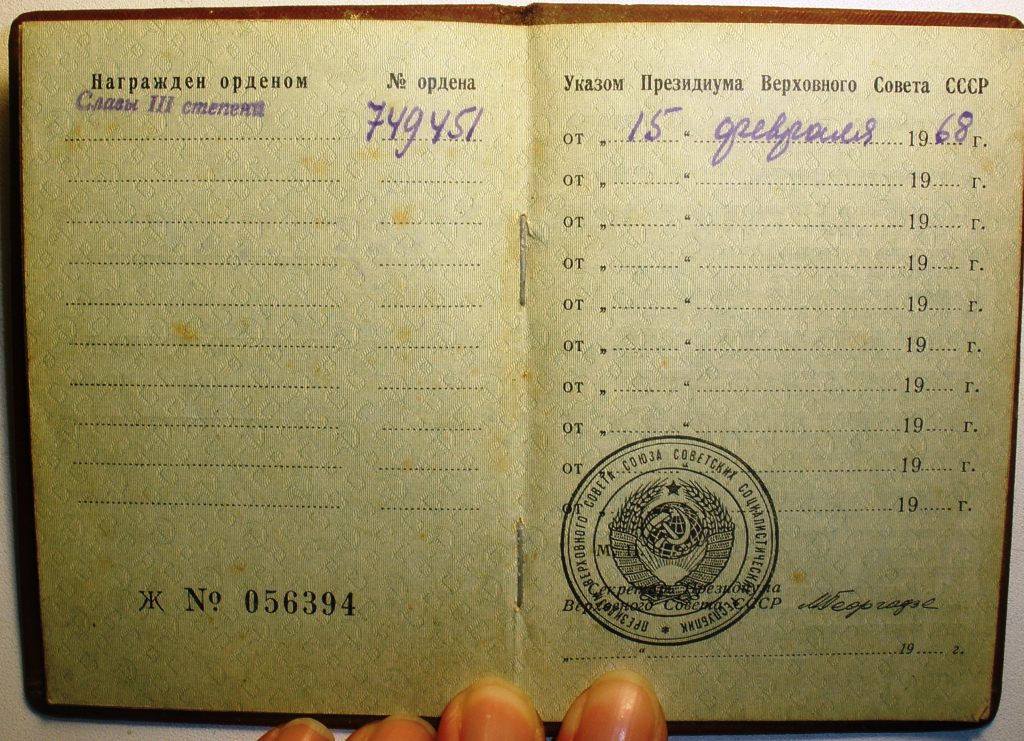 Награжден орденом № ордена
Славы III степени 749451
Ж № 056394
Указом Президиума Верховного Совета СССР
от „ 15 “ февраля 1968 г.
от „ “ 19 г.
от „ “ 19 г.
от „ “ 19 г.
от „ “ 19 г.
от „ “ 19 г.
от „ “ 19 г.
от „ “ 19 г.
от „ “ 19 г.
от „ “ 19 г.
ПРЕЗИДИУМ ВЕРХОВНОГО СОВЕТА СОЮЗА СОВЕТСКИХ СОЦИАЛИСТИЧЕСКИХ РЕСПУБЛИК *
М. П.
Секретарь Президиума
Верховного Совета СССР МГеоргадзе
„ “ 19 г.